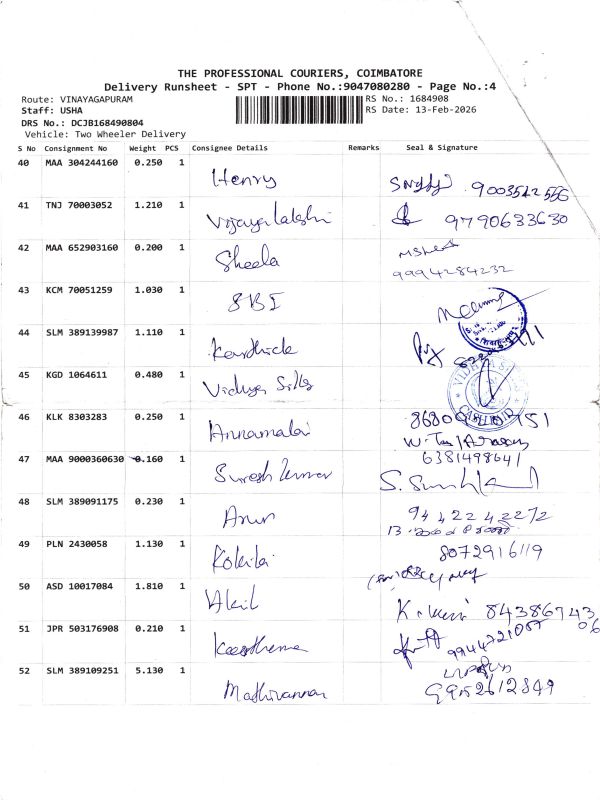 THE PROFESSIONAL COURIERS, COIMBATORE
Delivery Runsheet - SPT - Phone No.:9047080280 - Page No.:4
Route: VINAYAGAPURAM
RS No.: 1684908
Staff: USHA
RS Date: 13-Feb-2026
DRS No.: DCJB168490804
Vehicle: Two Wheeler Delivery
S No Consignment No Weight PCS Consignee Details Remarks Seal & Signature
40 MAA 304244160 0.250 1
Henry 9003542556
41 TNJ 70003052 1.210 1
Vijayalakshi 9790633630
42 MAA 652903160 0.200 1
Sheela
9994284232
43 KCM 70051259 1.030 1
SBI
44 SLM 389139987 1.110 1
Karthick
45 KGD 1064611 0.480 1
Vidhya Silks
46 KLK 8303283 0.250 1
Annamalai
47 MAA 9000360630 0.160 1
6381498641
Suresh Kumar
48 SLM 389091175 0.230 1
Arun 9442242272
49 PLN 2430058 1.130 1
8072916119
Kokila
50 ASD 10017084 1.810 1
Akil
51 JPR 503176908 0.210 1
52 SLM 389109251 5.130 1
Mathivannan 9952612849